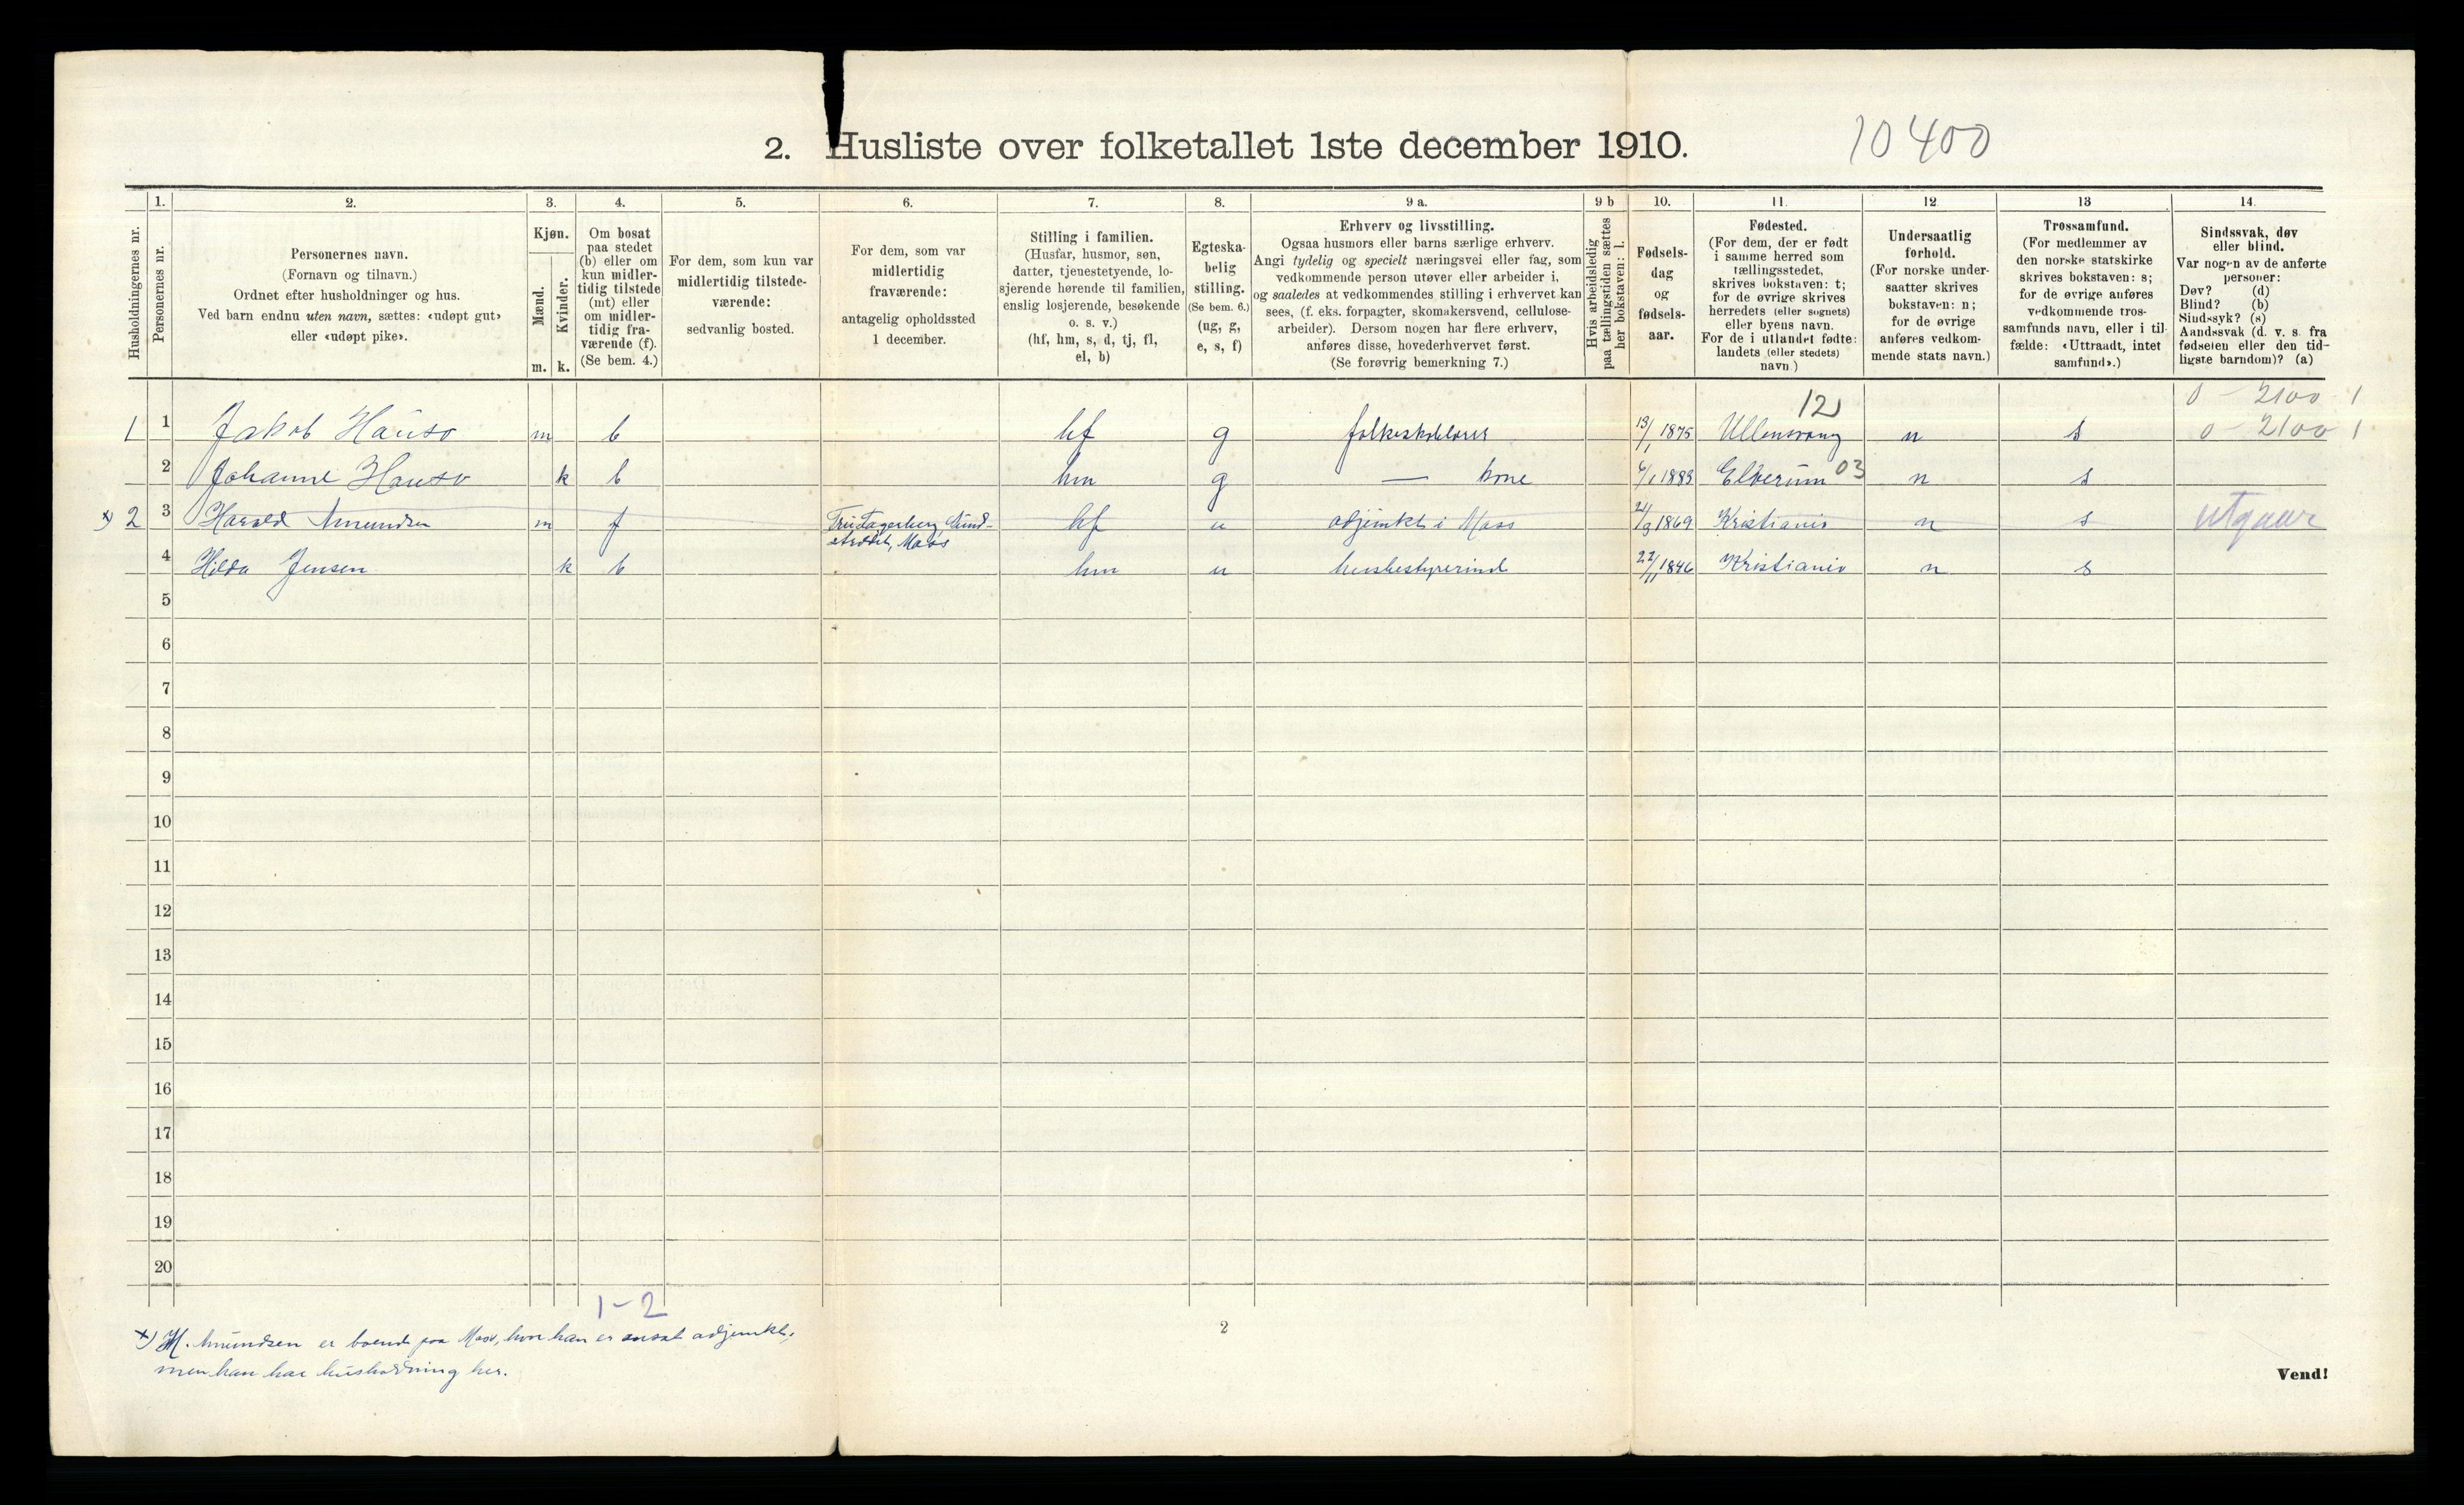 2. Husliste over folketallet 1ste december 1910.
10400
Husholdningernes nr.
1.
Personernes nr.
2.
Personernes navn.
(Fornavn og tilnavn.)
Ordnet efter husholdninger og hus.
Ved barn endnu uten navn, sættes: «udøpt gut»
eller «udøpt pike».
3.
Kjøn.
Mænd.
Kvinder.
m. k.
4.
Om bosat
paa stedet
(b) eller om
kun midler-
tidig tilstede
(mt) eller
om midler-
tidig fra-
værende (f).
(Se bem. 4.)
5.
For dem, som kun var
midlertidig tilstede-
værende:
sedvanlig bosted.
6.
For dem, som var
midlertidig
fraværende:
antagelig opholdssted
1 december.
7.
Stilling i familien.
(Husfar, husmor, søn,
datter, tjenestetyende, lo-
sjerende hørende til familien,
enslig losjerende, besøkende
o. s. v.)
(hf, hm, s, d, tj, fl,
el, b)
8.
Egteska-
belig
stilling.
(Se bem. 6.)
(ug, g,
e, s, f)
9 a.
Erhverv og livsstilling.
Ogsaa husmors eller barns særlige erhverv.
Angi tydelig og specielt næringsvei eller fag, som
vedkommende person utøver eller arbeider i,
og saaledes at vedkommendes stilling i erhvervet kan
sees, (f. eks. forpagter, skomakersvend, cellulose-
arbeider). Dersom nogen har flere erhverv,
anføres disse, hovederhvervet først.
(Se forøvrig bemerkning 7.)
9 b
Hvis arbeidsledig
paa tællingstiden sættes
her bokstaven: l.
10.
Fødsels-
dag
og
fødsels-
aar.
11.
Fødested.
(For dem, der er født
i samme herred som
tællingsstedet,
skrives bokstaven: t;
for de øvrige skrives
herredets (eller sognets)
eller byens navn.
For de i utlandet fødte:
landets (eller stedets)
navn.)
12.
Undersaatlig
forhold.
(For norske under-
saatter skrives
bokstaven: n;
for de øvrige
anføres vedkom-
mende stats navn.)
13
Trossamfund.
(For medlemmer av
den norske statskirke
skrives bokstaven: s;
for de øvrige anføres
vedkommende tros-
samfunds navn, eller i til-
fælde: «Uttraadt, intet
samfund».)
14.
Sindssvak, døv
eller blind.
Var nogen av de anførte
personer:
Døv? (d)
Blind? (b)
Sindssyk? (s)
Aandssvak (d. v. s. fra
fødselen eller den tid-
ligste barndom)? (a)
12 0 - 2100 - 1
1 1 Jakob Hauso m b hf g folkeskolelærer 13/1 1875 Ullensvang n s 0 - 2100 1
2 Johanne Hauso k b hm g — kone 6/1 1883 Elverum 03 n s
x) 2 3 Harald Amundsen m f hf u adjunkt i Moss 21/9 1869 Kristiania n s utgaar
Moss
4 Hilda Jensen k b hm u husbestyrerinde 22/11 1846 Kristiania n s
5
6
7
8
9
10
11
12
13
14
15
16
17
18
19
20
1-2
x) H. Amundsen er boende paa Moss, hvor han er ansat adjunkt,
men han har husholdning her.
2
Vend!